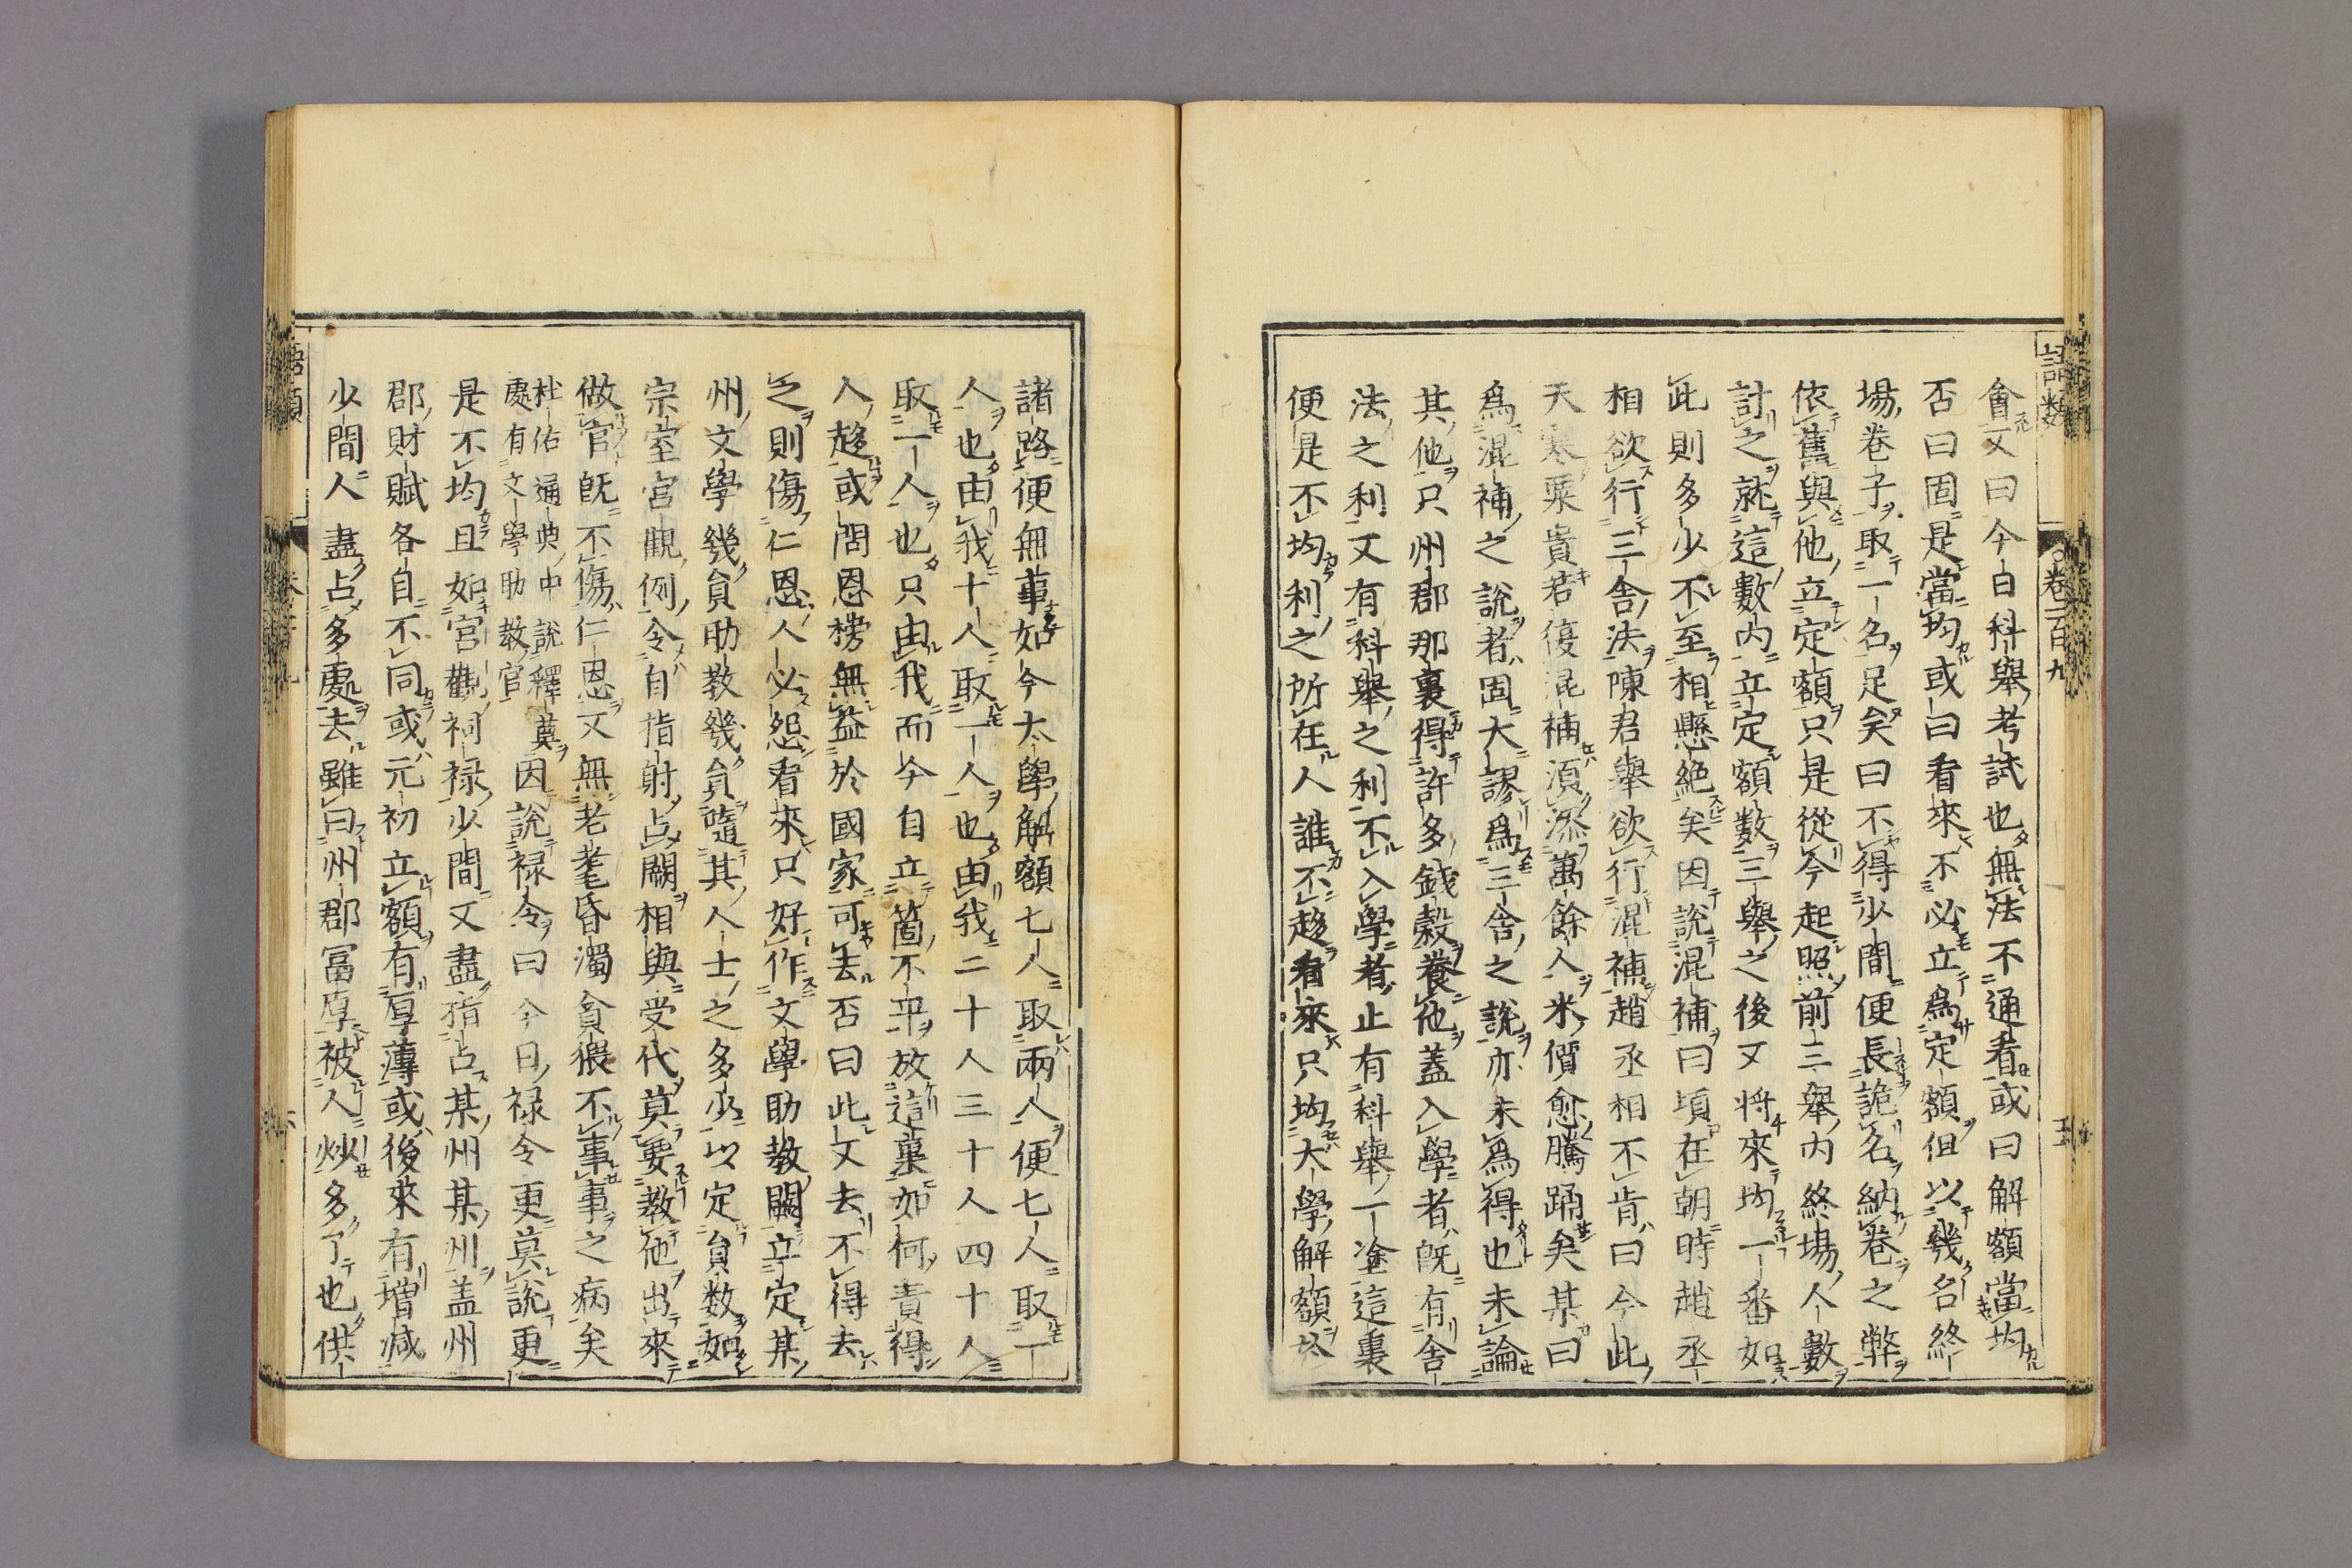 語類 卷一百九
會又曰今日科舉考試也無法不通看或曰解額當均
否曰固是當均或曰看來不必立爲定額但以幾名終
場卷子取一名足矣曰不得少間便長詭名納卷之弊
依舊與他立定額只是從今起照前三舉內終場人數
計之就這數內立定額數三舉之後又將來均一番如
此則多少不至相懸絕矣因說混補曰頃在朝時趙丞
相欲行三舍法陳君舉欲行混補趙丞相不肯曰今此
天寒粟貴若復混補湏添萬餘人米價愈騰踊矣某曰
爲混補之說者固大謬爲三舍之說亦未爲得也未論
其他只州郡那裏得許多錢穀養他蓋入學者既有舍
法之利又有科舉之利不入學者止有科舉一塗這裏
便是不均利之所在人誰不趍看來只均大學解額於
諸路便無事如今大學解額七人取兩人便七人取一
人也由我十人取一人也由我二十人三十人四十人
取一人也只由我而今自立箇不平放這裏如何責得
人趍或問恩榜無益於國家可去否曰此又去不得去
之則傷仁恩人必怨看來只好作文學助教闕立定某
州文學幾員助教幾員隨其人士之多少以定員數如
宗室宮觀例令自指射占闕相與受代莫要教他出來
做官既不傷仁恩又無老耄昏濁貪猥不事事之病矣
杜佑通典中說釋奠
處有文學助教官
因說禄令曰今日禄令更莫說更
是不均且如宮觀祠禄少間又盡指占某州某州盖州
郡財賦各自不同或元初立額有厚薄或後來有增減
少間人盡占多處去雖曰州郡冨厚被人炒多了也供